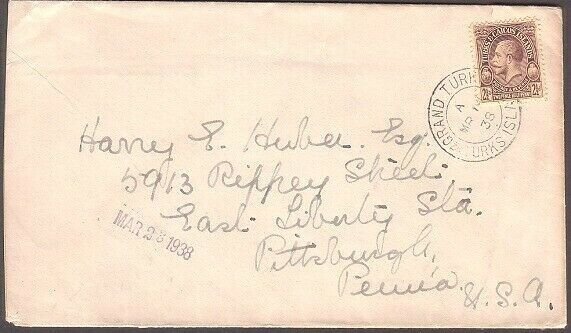 TURKS & CAICOS ISLANDS
2½ 2½
GRAND TURK
A
MR
38
TURKS ISL
Harry E. Huber Esq.
5913 Rippey Street,
East Liberty Sta.
Pittsburgh,
Penn'a. U.S.A.
MAR 28 1938